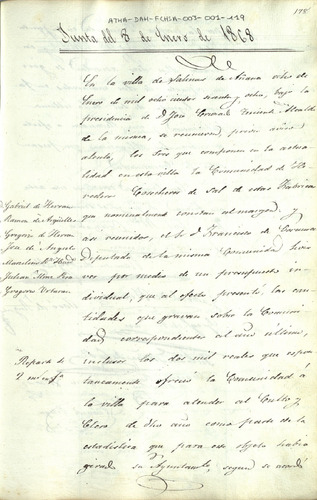 ATHA-DAH-FCHSA-003-001-119
178
Junta del 8 de Enero de 1868
En la villa de Salinas de Añana ocho de
Enero de mil ocho cientos sesenta y ocho, bajo la
presidencia de D. José Alcalde
de la misma, se reunieron, previo aviso
atento, los Sres que componen en la actua
lidad en esta villa la Comunidad de He
rederos Cosecheros de Sal de estas Fabricas
que nominalmente constan al margen, y
asi reunidos, el Sr. D. Francisco de
Diputado de la misma Comunidad hizo
ver por medio de un presupuesto in
dividual, que al efecto presentó, las can
tidades que gravan sobre la Comuni
dad correspondientes al año último,
inclusos los dos mil reales que espon
taneamente ofrecio la Comunidad á
la villa para atender al Culto y
Clero de dho año como parte de la
estadistica que para este objeto habia
girado su Ayuntamto, segun se acordó
Gabriel de Herran
Ramon de Argüelles
Gregorio de Herran
José de Angulo
Julian
Gregorio
Reparto de